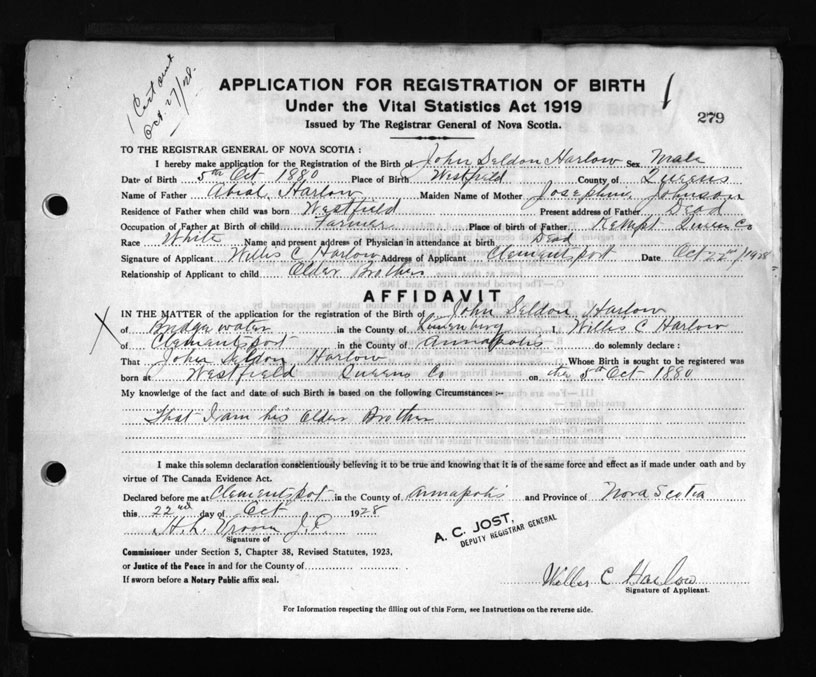 1 Cert sent
Oct. 27/28.
APPLICATION FOR REGISTRATION OF BIRTH
Under the Vital Statistics Act 1919
Issued by The Registrar General of Nova Scotia.
279
TO THE REGISTRAR GENERAL OF NOVA SCOTIA :
I hereby make application for the Registration of the Birth of John Seldon Harlow Sex Male
Date of Birth 5th Oct 1880 Place of Birth Westfield County of Queens
Name of Father Abial Harlow Maiden Name of Mother Josephine Johnson
Residence of Father when child was born Westfield Present address of Father Dead
Occupation of Father at Birth of child Farmer Place of birth of Father Kempt Queens Co
Race White Name and present address of Physician in attendance at birth Dead
Signature of Applicant Willis C Harlow Address of Applicant Clementsport Date Oct 22nd/1928
Relationship of Applicant to child Older Brother
AFFIDAVIT
IN THE MATTER of the application for the registration of the Birth of John Seldon Harlow
of Bridgewater in the County of Lunenburg I, Willis C Harlow
of Clementsport in the County of Annapolis do solemnly declare :
That John Seldon Harlow Whose Birth is sought to be registered was
born at Westfield Queens Co on the 5th Oct 1880
My knowledge of the fact and date of such Birth is based on the following Circumstances :-
That I am his Older Brother
I make this solemn declaration conscientiously believing it to be true and knowing that it is of the same force and effect as if made under oath and by
virtue of The Canada Evidence Act.
Declared before me at Clementsport in the County of Annapolis and Province of Nova Scotia
this 22nd day of Oct 1928
H. L. Vroom J.P.
Signature of
A. C. JOST,
DEPUTY REGISTRAR GENERAL
Commissioner under Section 5, Chapter 38, Revised Statutes, 1923,
or Justice of the Peace in and for the County of
If sworn before a Notary Public affix seal.
Willis C Harlow
Signature of Applicant.
For Information respecting the filling out of this Form, see Instructions on the reverse side.